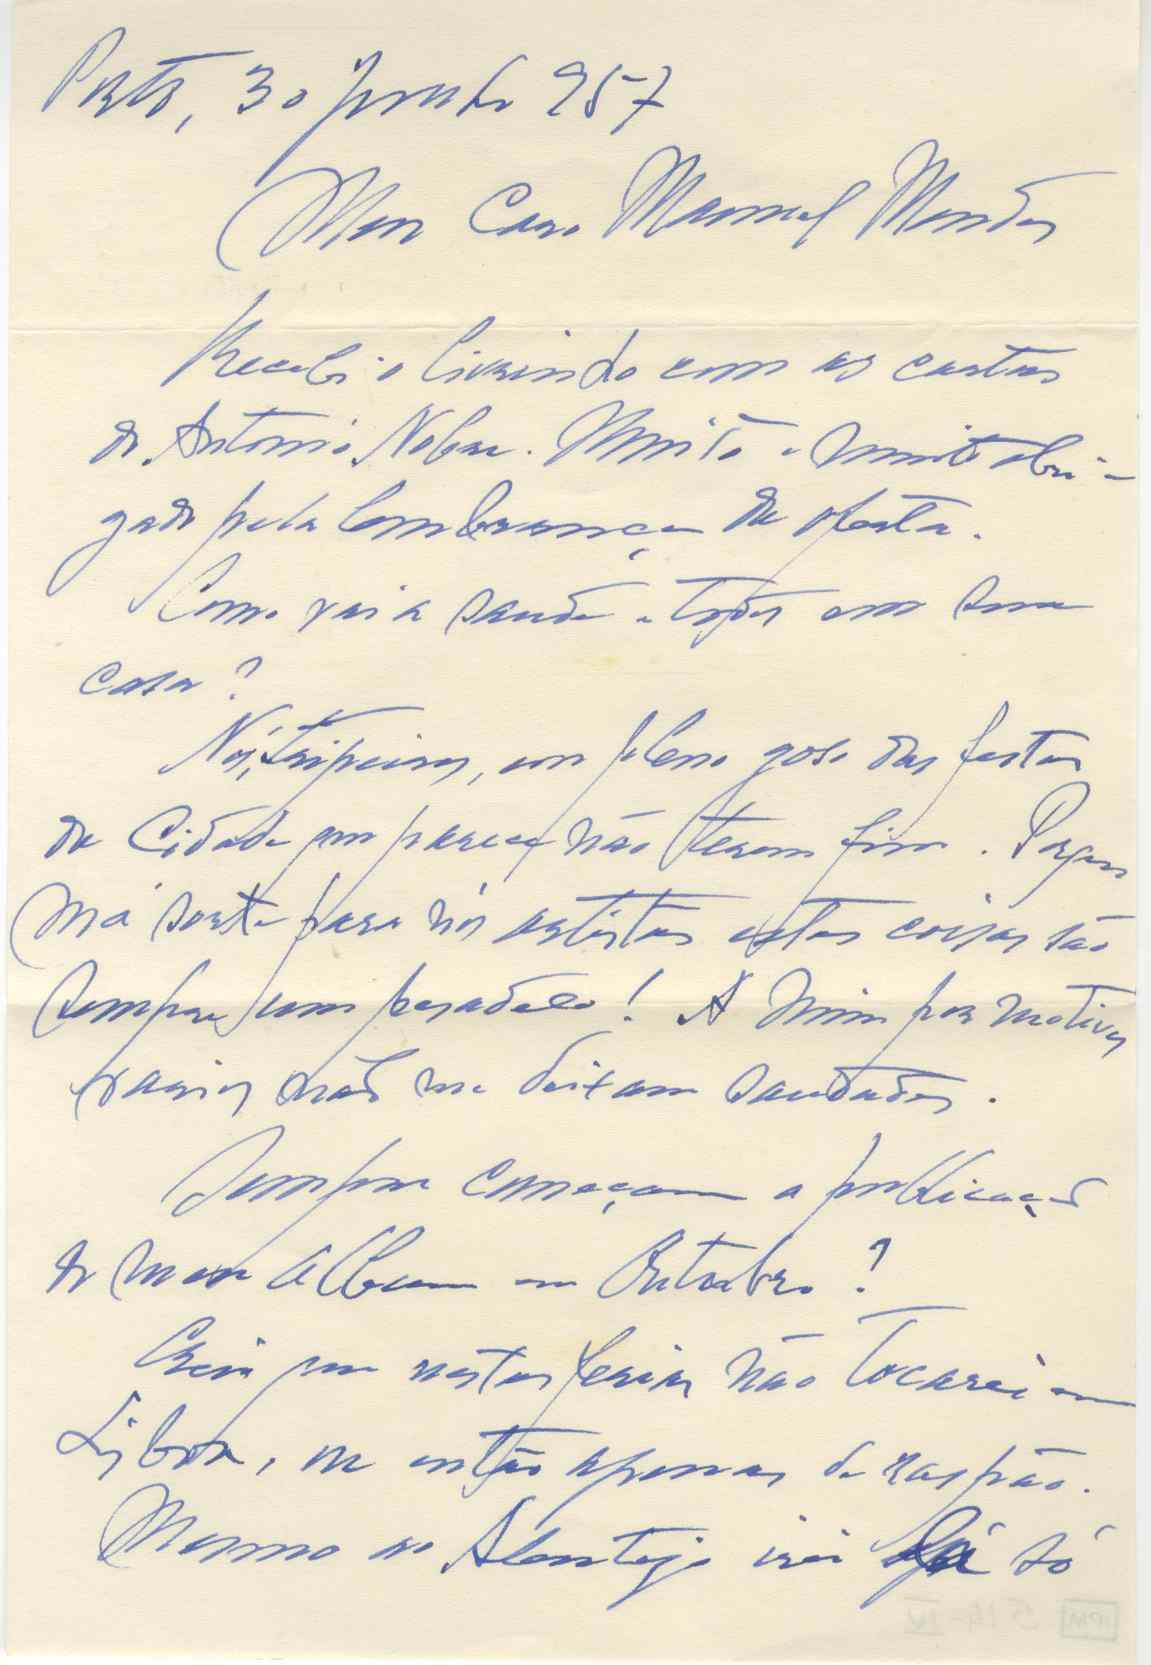 Porto, 30 Junho 957
Meu Caro Manuel Mendes
Recebi o livrinho com as cartas
do Antonio Nobre. Muito e muito obri-
gado pela lembrança da oferta.
Como vai a saude e todos em sua
casa?
Nós, tripeiros, em pleno goso das festas
da Cidade que parece não terem fim. Por
má sorte para nós artistas estas coisas são
sempre um pesadelo! A mim por motivos
varios não me deixam saudades.
Sempre começam a publicação
do meu Album em Outubro?
Creio que nestas ferias não tocarei em
Lisboa, ou então apenas de raspão.
Mesmo ao Alentejo irei só